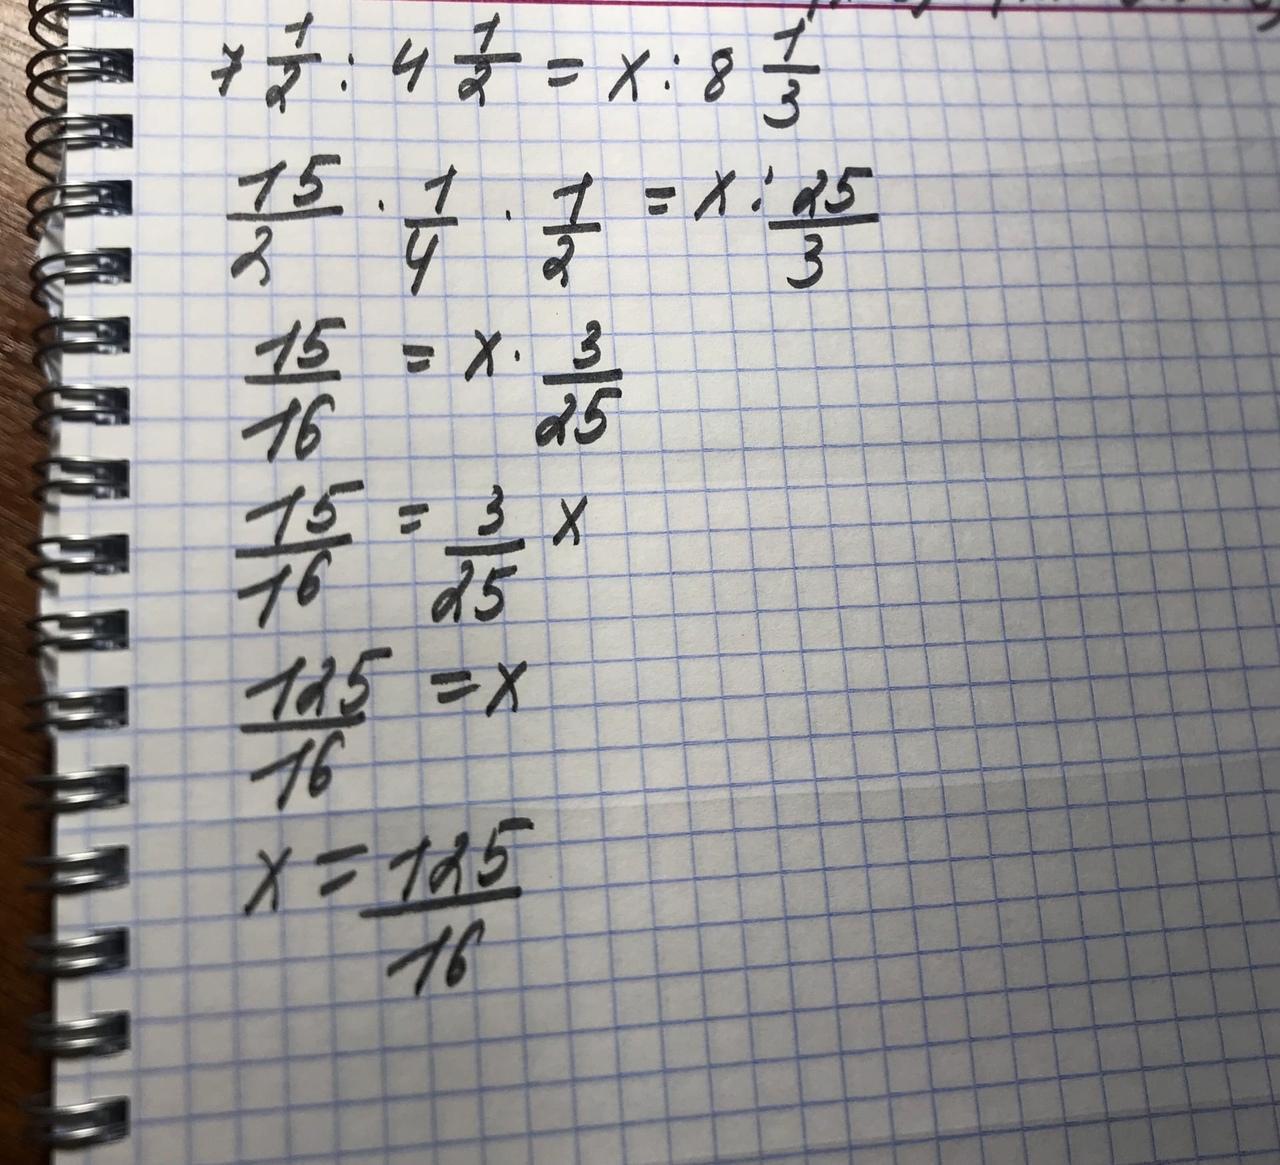 7 1/2 : 4 1/2 = x : 8 1/3
15/2 · 1/4 · 1/2 = x : 25/3
15/16 = x · 3/25
15/16 = 3/25 x
125/16 = x
x = 125/16